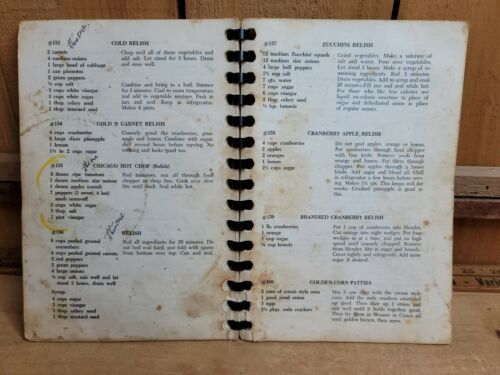 #153 COLD RELISH
2 carrots
4 medium onions
1 large head of cabbage
1 can pimentos
2 green peppers
½ cup salt
3 cups white vinegar
3 cups white sugar
1 tbsp. celery seed
1 tbsp. mustard seed
Chop well all of these vegetables and
add salt. Let stand for 3 hours. Drain
and rinse well.
Combine and bring to a boil. Simmer
for 5 minutes. Cool to room temperature
and add to vegetable mixture. Pack in
jars and seal. Keep in refrigerator.
Makes 6 pints.
#154 GOLD N GARNET RELISH
4 cups cranberries
½ large diced pineapple
1 lemon
1½ to 2 cups sugar
Coarsely grind the cranberries, pine-
apple and lemon. Combine with sugar,
chill several hours before serving. No
cooking and looks good too.
#155 CHICAGO HOT CHOP (Relish)
2 dozen ripe tomatoes
1 dozen medium size onions
1 dozen apples (cored)
7 peppers (3 sweet, 4 hot)
seeds removed
3 cups white sugar
3 tbsp. salt
1 pint vinegar
Peel tomatoes, run all through food
chopper or chop fine. Cook over slow
fire until thick. Seal while hot.
#156 RELISH
6 cups peeled ground
cucumbers
6 cups peeled ground carrots
2 red peppers
2 green peppers
4 large onions
½ cup salt, mix well and let
stand 3 hours, drain well
Syrup
4 cups sugar
3 cups vinegar
1 tbsp. celery seed
1 tbsp. mustard seed
Boil all ingredients for 20 minutes. Do
not boil too hard, and fold with spoon
from bottom over top. Can and seal.
#157 ZUCCHINI RELISH
12 medium Zucchini squash
12 medium size onions
4 large bell peppers
1½ cup salt
7 qts. water
7 cups sugar
6 cups vinegar
1 tbsp. celery seed
½ tsp. tumeric
Grind vegetables. Make a solution of
salt and water. Pour over vegetables.
Let stand 3 hours. Make a syrup of re-
maining ingredients. Boil 3 minutes.
Drain vegetables. Add to syrup and cook
Fill jars and seal while hot.
For those who like low calories use
liquid no-calorie sweetener in place of
sugar and dehydrated onion in place
of regular onions.
#158 CRANBERRY APPLE, RELISH
4 cups cranberries
2 apples
2 oranges
1 lemon
2½ cups sugar
Do not peel apples orange or lemon.
Put cranberries through food chopper
with fine knife. Remove seeds from
orange and lemon. Put these through
chopper. Put apples through chopper
Add sugar and blend all. Chill in
refrigerator a few hours before serv-
ing. Makes 1¼ qts. This keeps well for
several weeks. Crushed pineapple is
good in this.
#159 BRANDIED CRANBERRY RELISH
1 lb. cranberries
1 orange
2 cups sugar
¼ cup brandy
Put 1 cup of cranberries in blender.
Cut orange into eight wedges. Put four
wedges in at a time, and put on high
speed until coarsely chopped. Remove
from blender. Stir in sugar and brandy.
Cover tightly and refrigerate. Add more
sugar if desired.
#160 GOLDEN CORN PATTIES
2 cans of cream style corn
1 good sized onion
2 eggs
2½ pkgs. soda crackers
Mix 2 raw eggs with the cream style
corn. Add the soda crackers crumbled
up good. Then dice up 1 onion and
mix well until it holds together good.
Then fry them in Wesson or Crisco oil
until golden brown, then serve.